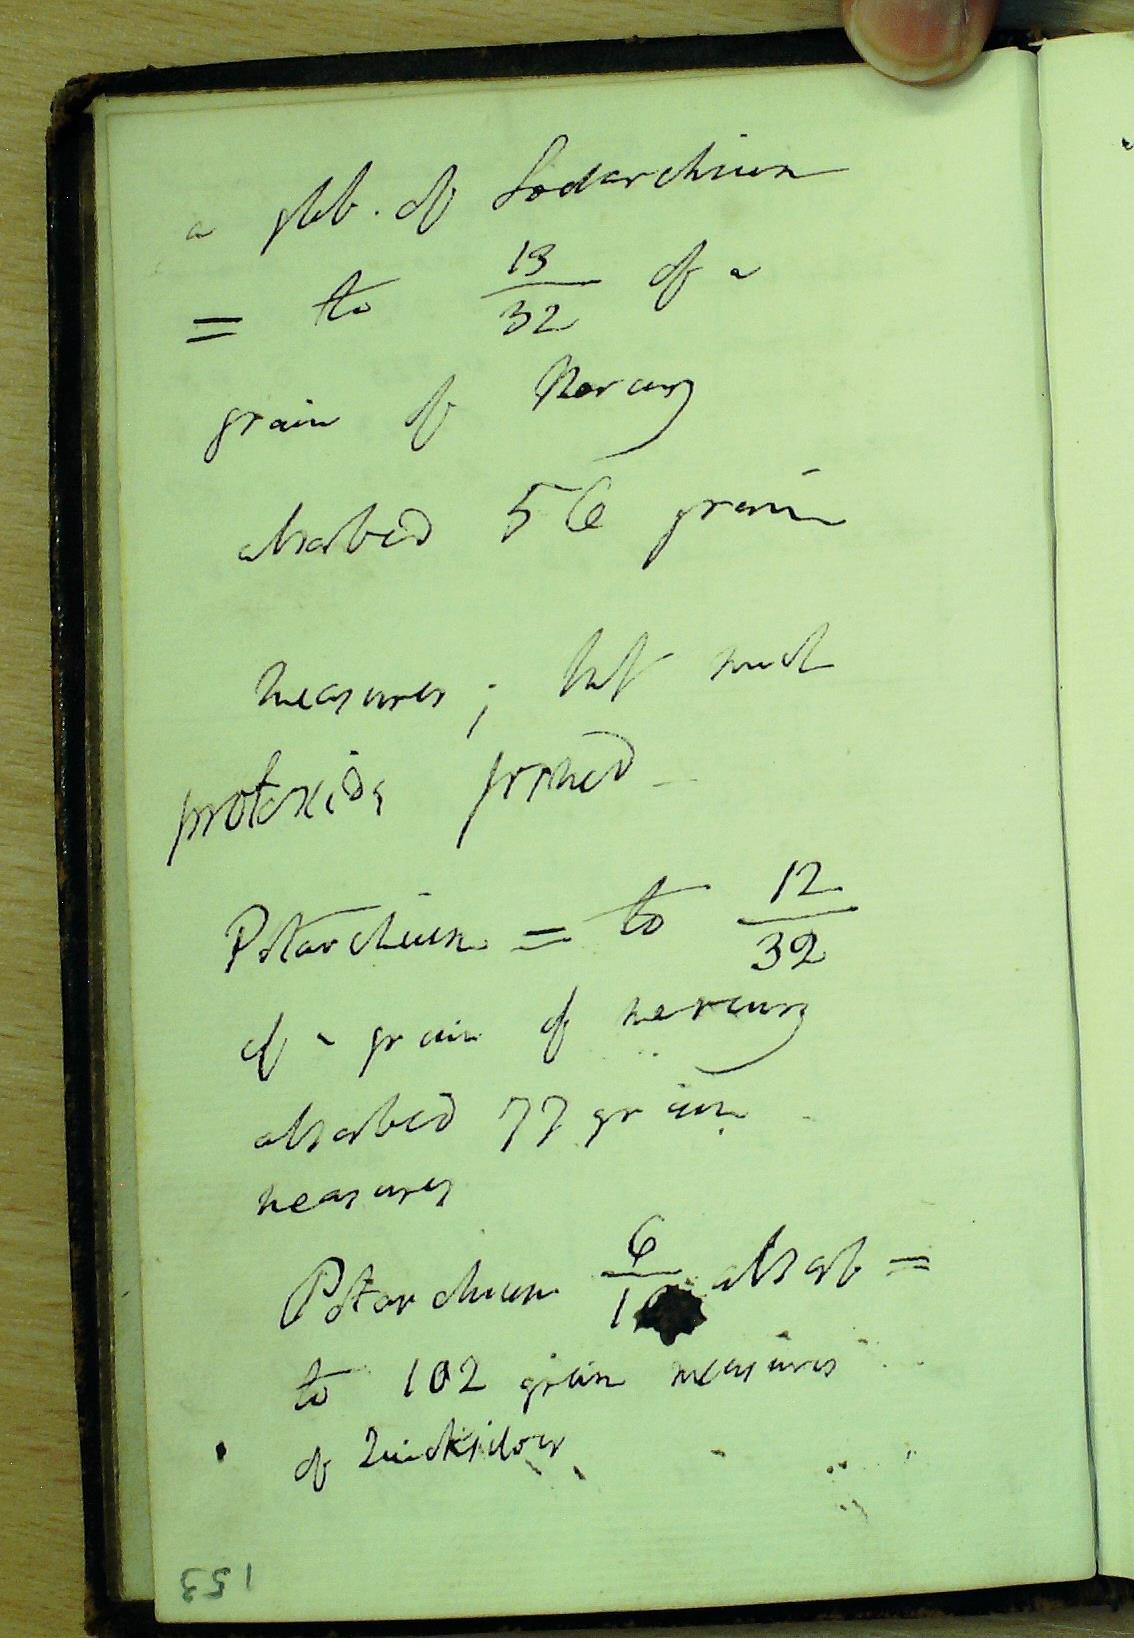 a glob. of Sodarchium
= to 13/32 of a
grain of Mercury
absorbed 56 grain
measures; but much
protoxide formed
Potarchium = to 12/32
of a grain of mercury
absorbed 77 grain
measures
Potarchium 6/1 absorb =
to 102 grain measures
of Quicksilver
153